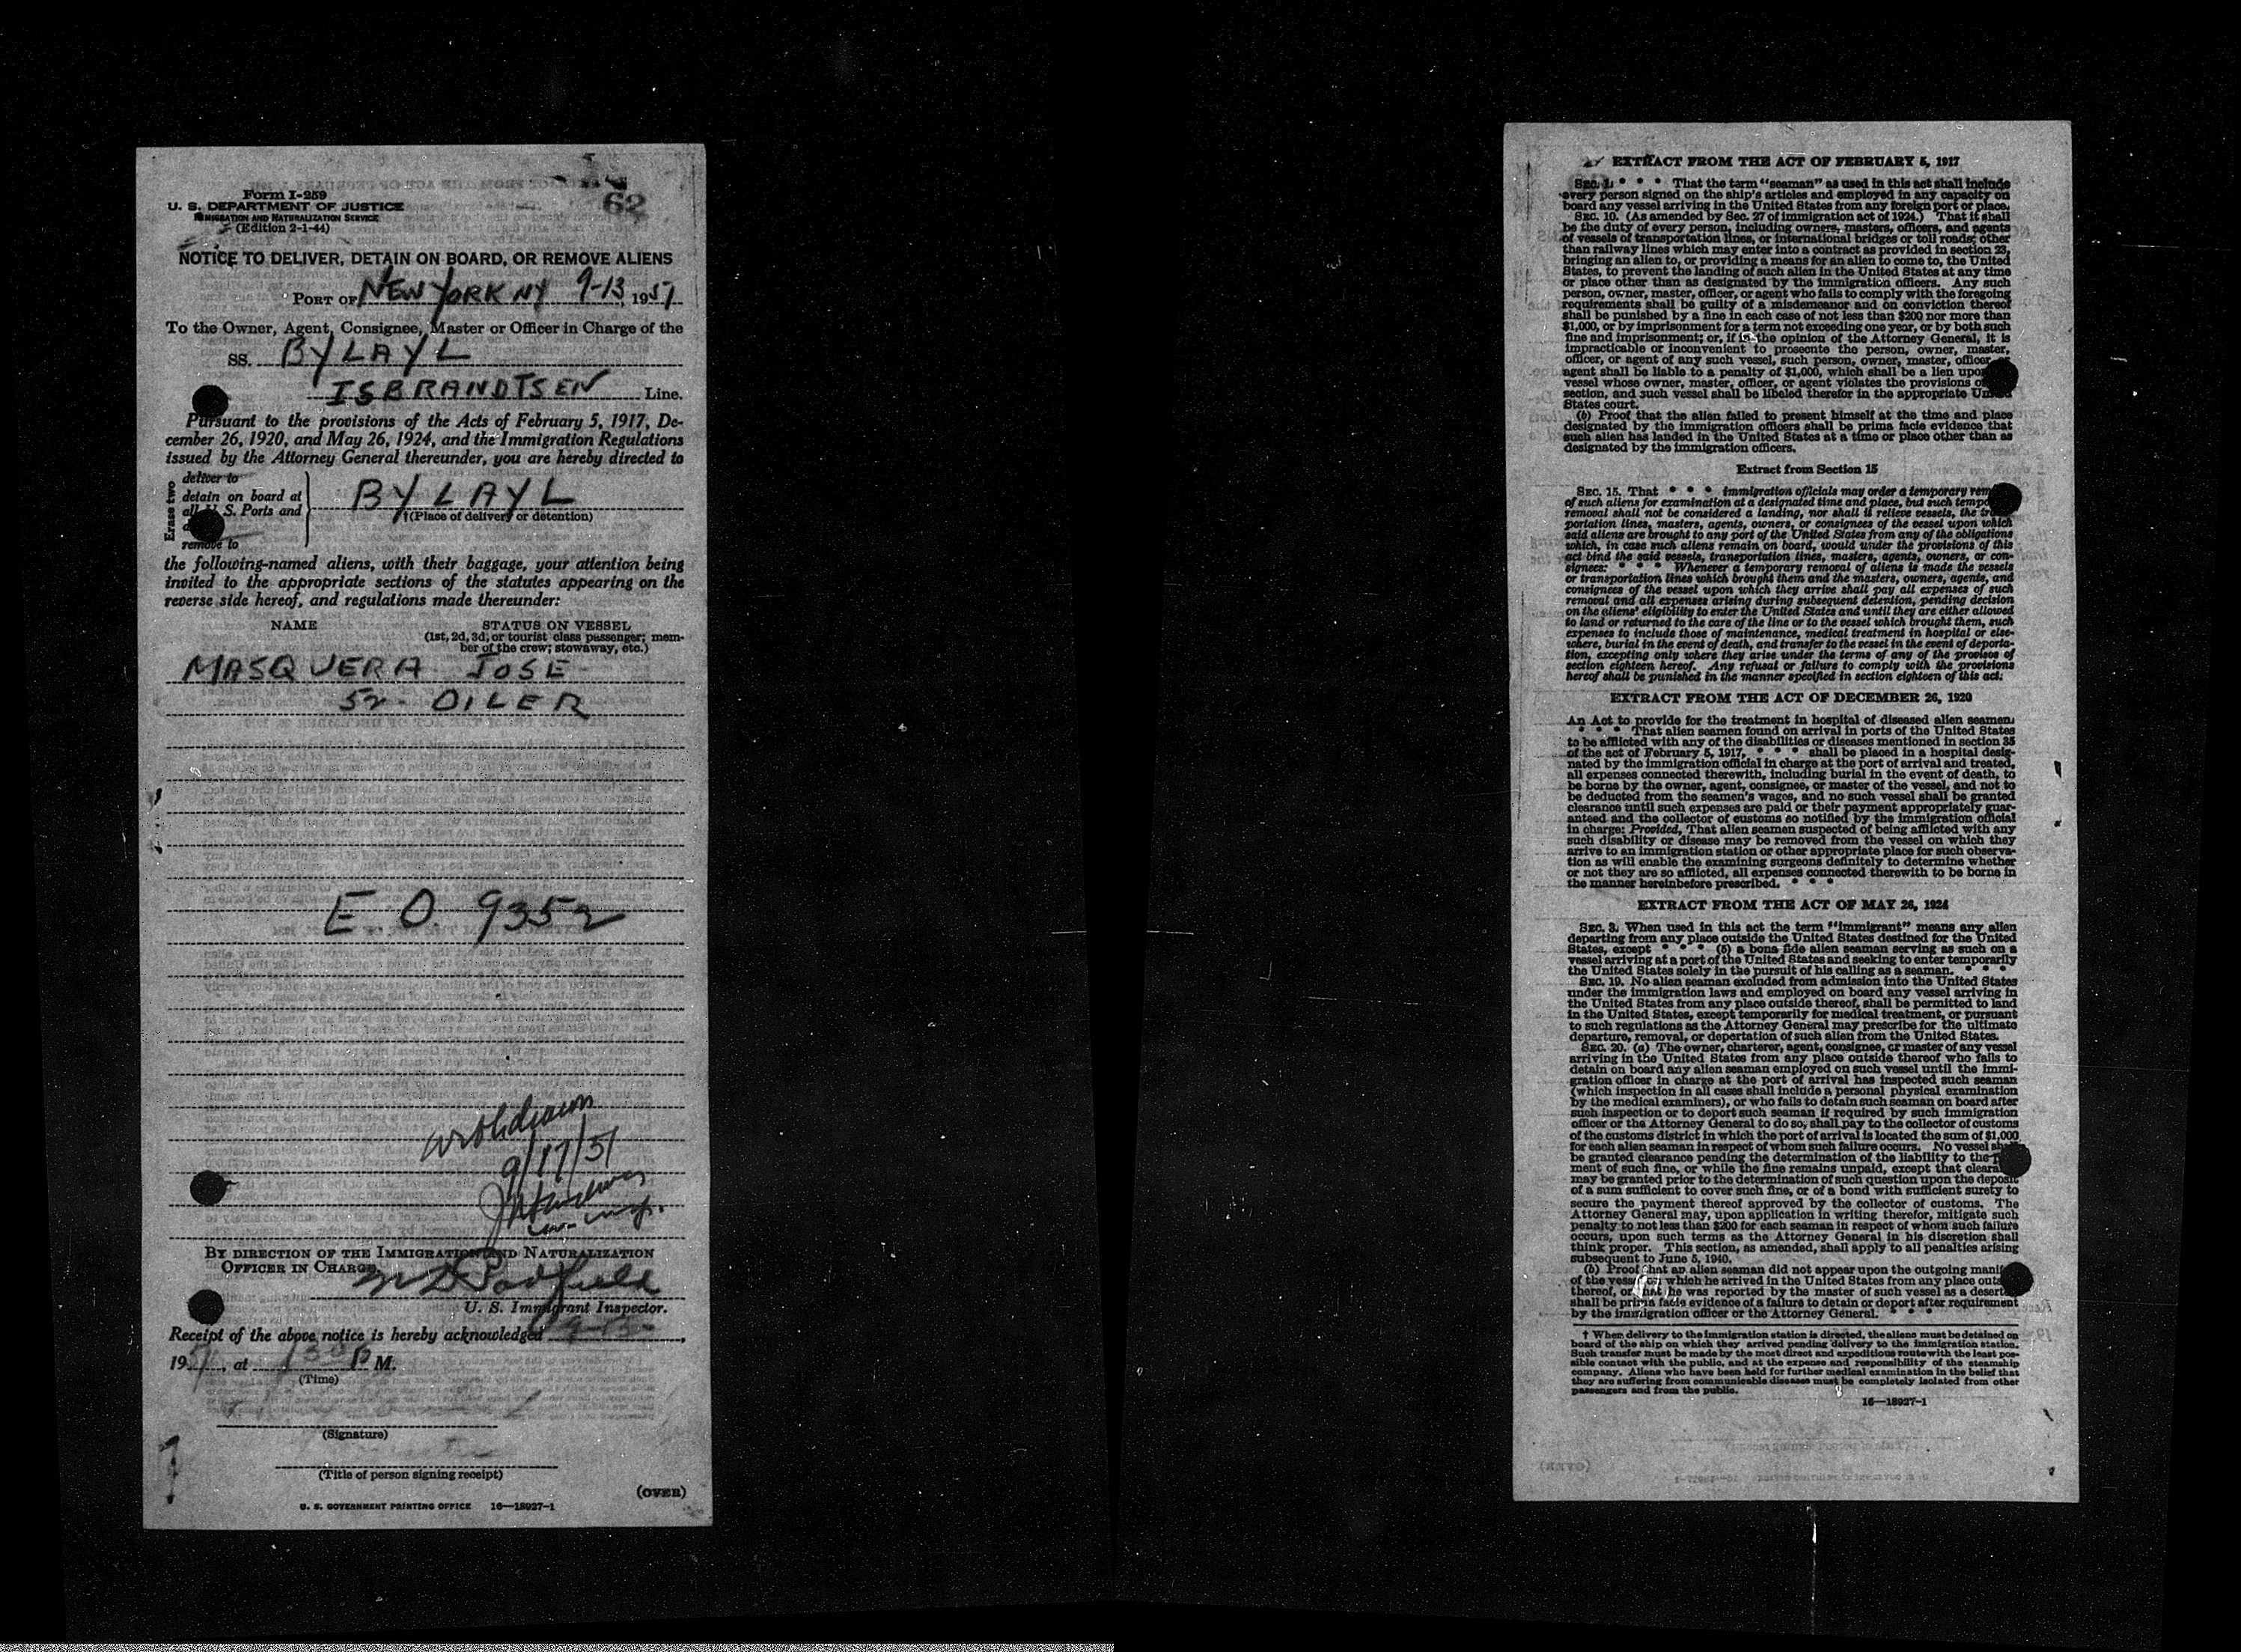 62
Form I-259
U. S. DEPARTMENT OF JUSTICE
IMMIGRATION AND NATURALIZATION SERVICE
(Edition 2-1-44)
NOTICE TO DELIVER, DETAIN ON BOARD, OR REMOVE ALIENS
PORT OF NEW YORK NY 9-13, 1951
To the Owner, Agent, Consignee, Master or Officer in Charge of the
SS. BYLAYL
ISBRANDTSEN Line.
Pursuant to the provisions of the Acts of February 5, 1917, De-
cember 26, 1920, and May 26, 1924, and the Immigration Regulations
issued by the Attorney General thereunder, you are hereby directed to
Erase two
deliver to
detain on board at
all U. S. Ports and
remove to
BYLAYL
†(Place of delivery or detention)
the following-named aliens, with their baggage, your attention being
invited to the appropriate sections of the statutes appearing on the
reverse side hereof, and regulations made thereunder:
NAME STATUS ON VESSEL
(1st, 2d, 3d, or tourist class passenger; mem-
ber of the crew; stowaway, etc.)
MASQUERA JOSE
52- OILER
E O 9352
Withdrawn
9/17/51
BY DIRECTION OF THE IMMIGRATION AND NATURALIZATION
OFFICER IN CHARGE
U. S. Immigrant Inspector.
Receipt of the above notice is hereby acknowledged 9-13-,
1951, at 130 P M.
(Time)
(Signature)
(Title of person signing receipt)
(OVER)
U. S. GOVERNMENT PRINTING OFFICE 16—18927-1
EXTRACT FROM THE ACT OF FEBRUARY 5, 1917
SEC. 1. * * * That the term "seaman" as used in this act shall include
every person signed on the ship's articles and employed in any capacity on
board any vessel arriving in the United States from any foreign port or place.
SEC. 10. (As amended by Sec. 27 of immigration act of 1924.) That it shall
be the duty of every person, including owners, masters, officers, and agents
of vessels of transportation lines, or international bridges or toll roads, other
than railway lines which may enter into a contract as provided in section 23,
bringing an alien to, or providing a means for an alien to come to, the United
States, to prevent the landing of such alien in the United States at any time
or place other than as designated by the immigration officers. Any such
person, owner, master, officer, or agent who fails to comply with the foregoing
requirements shall be guilty of a misdemeanor and on conviction thereof
shall be punished by a fine in each case of not less than $200 nor more than
$1,000, or by imprisonment for a term not exceeding one year, or by both such
fine and imprisonment; or, if in the opinion of the Attorney General, it is
impracticable or inconvenient to prosecute the person, owner, master,
officer, or agent of any such vessel, such person, owner, master, officer, or
agent shall be liable to a penalty of $1,000, which shall be a lien upon
vessel whose owner, master, officer, or agent violates the provisions of
section, and such vessel shall be libeled therefor in the appropriate United
States court.
(b) Proof that the alien failed to present himself at the time and place
designated by the immigration officers shall be prima facie evidence that
such alien has landed in the United States at a time or place other than as
designated by the immigration officers.
Extract from Section 15
SEC. 15. That * * * immigration officials may order a temporary removal
of such aliens for examination at a designated time and place, but such temporary
removal shall not be considered a landing, nor shall it relieve vessels, the trans-
portation lines, masters, agents, owners, or consignees of the vessel upon which
said aliens are brought to any port of the United States from any of the obligations
which, in case such aliens remain on board, would under the provisions of this
act bind the said vessels, transportation lines, masters, agents, owners, or con-
signees: * * * Whenever a temporary removal of aliens is made the vessels
or transportation lines which brought them and the masters, owners, agents, and
consignees of the vessel upon which they arrive shall pay all expenses of such
removal and all expenses arising during subsequent detention, pending decision
on the aliens' eligibility to enter the United States and until they are either allowed
to land or returned to the care of the line or to the vessel which brought them, such
expenses to include those of maintenance, medical treatment in hospital or else-
where, burial in the event of death, and transfer to the vessel in the event of deporta-
tion, excepting only where they arise under the terms of any of the provisos of
section eighteen hereof. Any refusal or failure to comply with the provisions
hereof shall be punished in the manner specified in section eighteen of this act.
EXTRACT FROM THE ACT OF DECEMBER 26, 1920
An Act to provide for the treatment in hospital of diseased alien seamen.
* * * That alien seamen found on arrival in ports of the United States
to be afflicted with any of the disabilities or diseases mentioned in section 35
of the act of February 5, 1917, * * * shall be placed in a hospital desig-
nated by the immigration official in charge at the port of arrival and treated,
all expenses connected therewith, including burial in the event of death, to
be borne by the owner, agent, consignee, or master of the vessel, and not to
be deducted from the seamen's wages, and no such vessel shall be granted
clearance until such expenses are paid or their payment appropriately guar-
anteed and the collector of customs so notified by the immigration official
in charge: Provided, That alien seamen suspected of being afflicted with any
such disability or disease may be removed from the vessel on which they
arrive to an immigration station or other appropriate place for such observa-
tion as will enable the examining surgeons definitely to determine whether
or not they are so afflicted, all expenses connected therewith to be borne in
the manner hereinbefore prescribed. * * *
EXTRACT FROM THE ACT OF MAY 26, 1924
SEC. 3. When used in this act the term "immigrant" means any alien
departing from any place outside the United States destined for the United
States, except * * * (5) a bona fide alien seaman serving as such on a
vessel arriving at a port of the United States and seeking to enter temporarily
the United States solely in the pursuit of his calling as a seaman. * * *
SEC. 19. No alien seaman excluded from admission into the United States
under the immigration laws and employed on board any vessel arriving in
the United States from any place outside thereof, shall be permitted to land
in the United States, except temporarily for medical treatment, or pursuant
to such regulations as the Attorney General may prescribe for the ultimate
departure, removal, or deportation of such alien from the United States.
SEC. 20. (a) The owner, charterer, agent, consignee, or master of any vessel
arriving in the United States from any place outside thereof who fails to
detain on board any alien seaman employed on such vessel until the immi-
gration officer in charge at the port of arrival has inspected such seaman
(which inspection in all cases shall include a personal physical examination
by the medical examiners), or who fails to detain such seaman on board after
such inspection or to deport such seaman if required by such immigration
officer or the Attorney General to do so, shall pay to the collector of customs
of the customs district in which the port of arrival is located the sum of $1,000
for each alien seaman in respect of whom such failure occurs. No vessel shall
be granted clearance pending the determination of the liability to the pay-
ment of such fine, or while the fine remains unpaid, except that clearance
may be granted prior to the determination of such question upon the deposit
of a sum sufficient to cover such fine, or of a bond with sufficient surety to
secure the payment thereof approved by the collector of customs. The
Attorney General may, upon application in writing therefor, mitigate such
penalty to not less than $200 for each seaman in respect of whom such failure
occurs, upon such terms as the Attorney General in his discretion shall
think proper. This section, as amended, shall apply to all penalties arising
subsequent to June 5, 1940.
(b) Proof that an alien seaman did not appear upon the outgoing manifest
of the vessel on which he arrived in the United States from any place outside
thereof, or that he was reported by the master of such vessel as a deserter,
shall be prima facie evidence of a failure to detain or deport after requirement
by the immigration officer or the Attorney General. * * *
† When delivery to the immigration station is directed, the aliens must be detained on
board of the ship on which they arrived pending delivery to the immigration station.
Such transfer must be made by the most direct and expeditious route with the least pos-
sible contact with the public, and at the expense and responsibility of the steamship
company. Aliens who have been held for further medical examination in the belief that
they are suffering from communicable diseases must be completely isolated from other
passengers and from the public.
16—18927-1